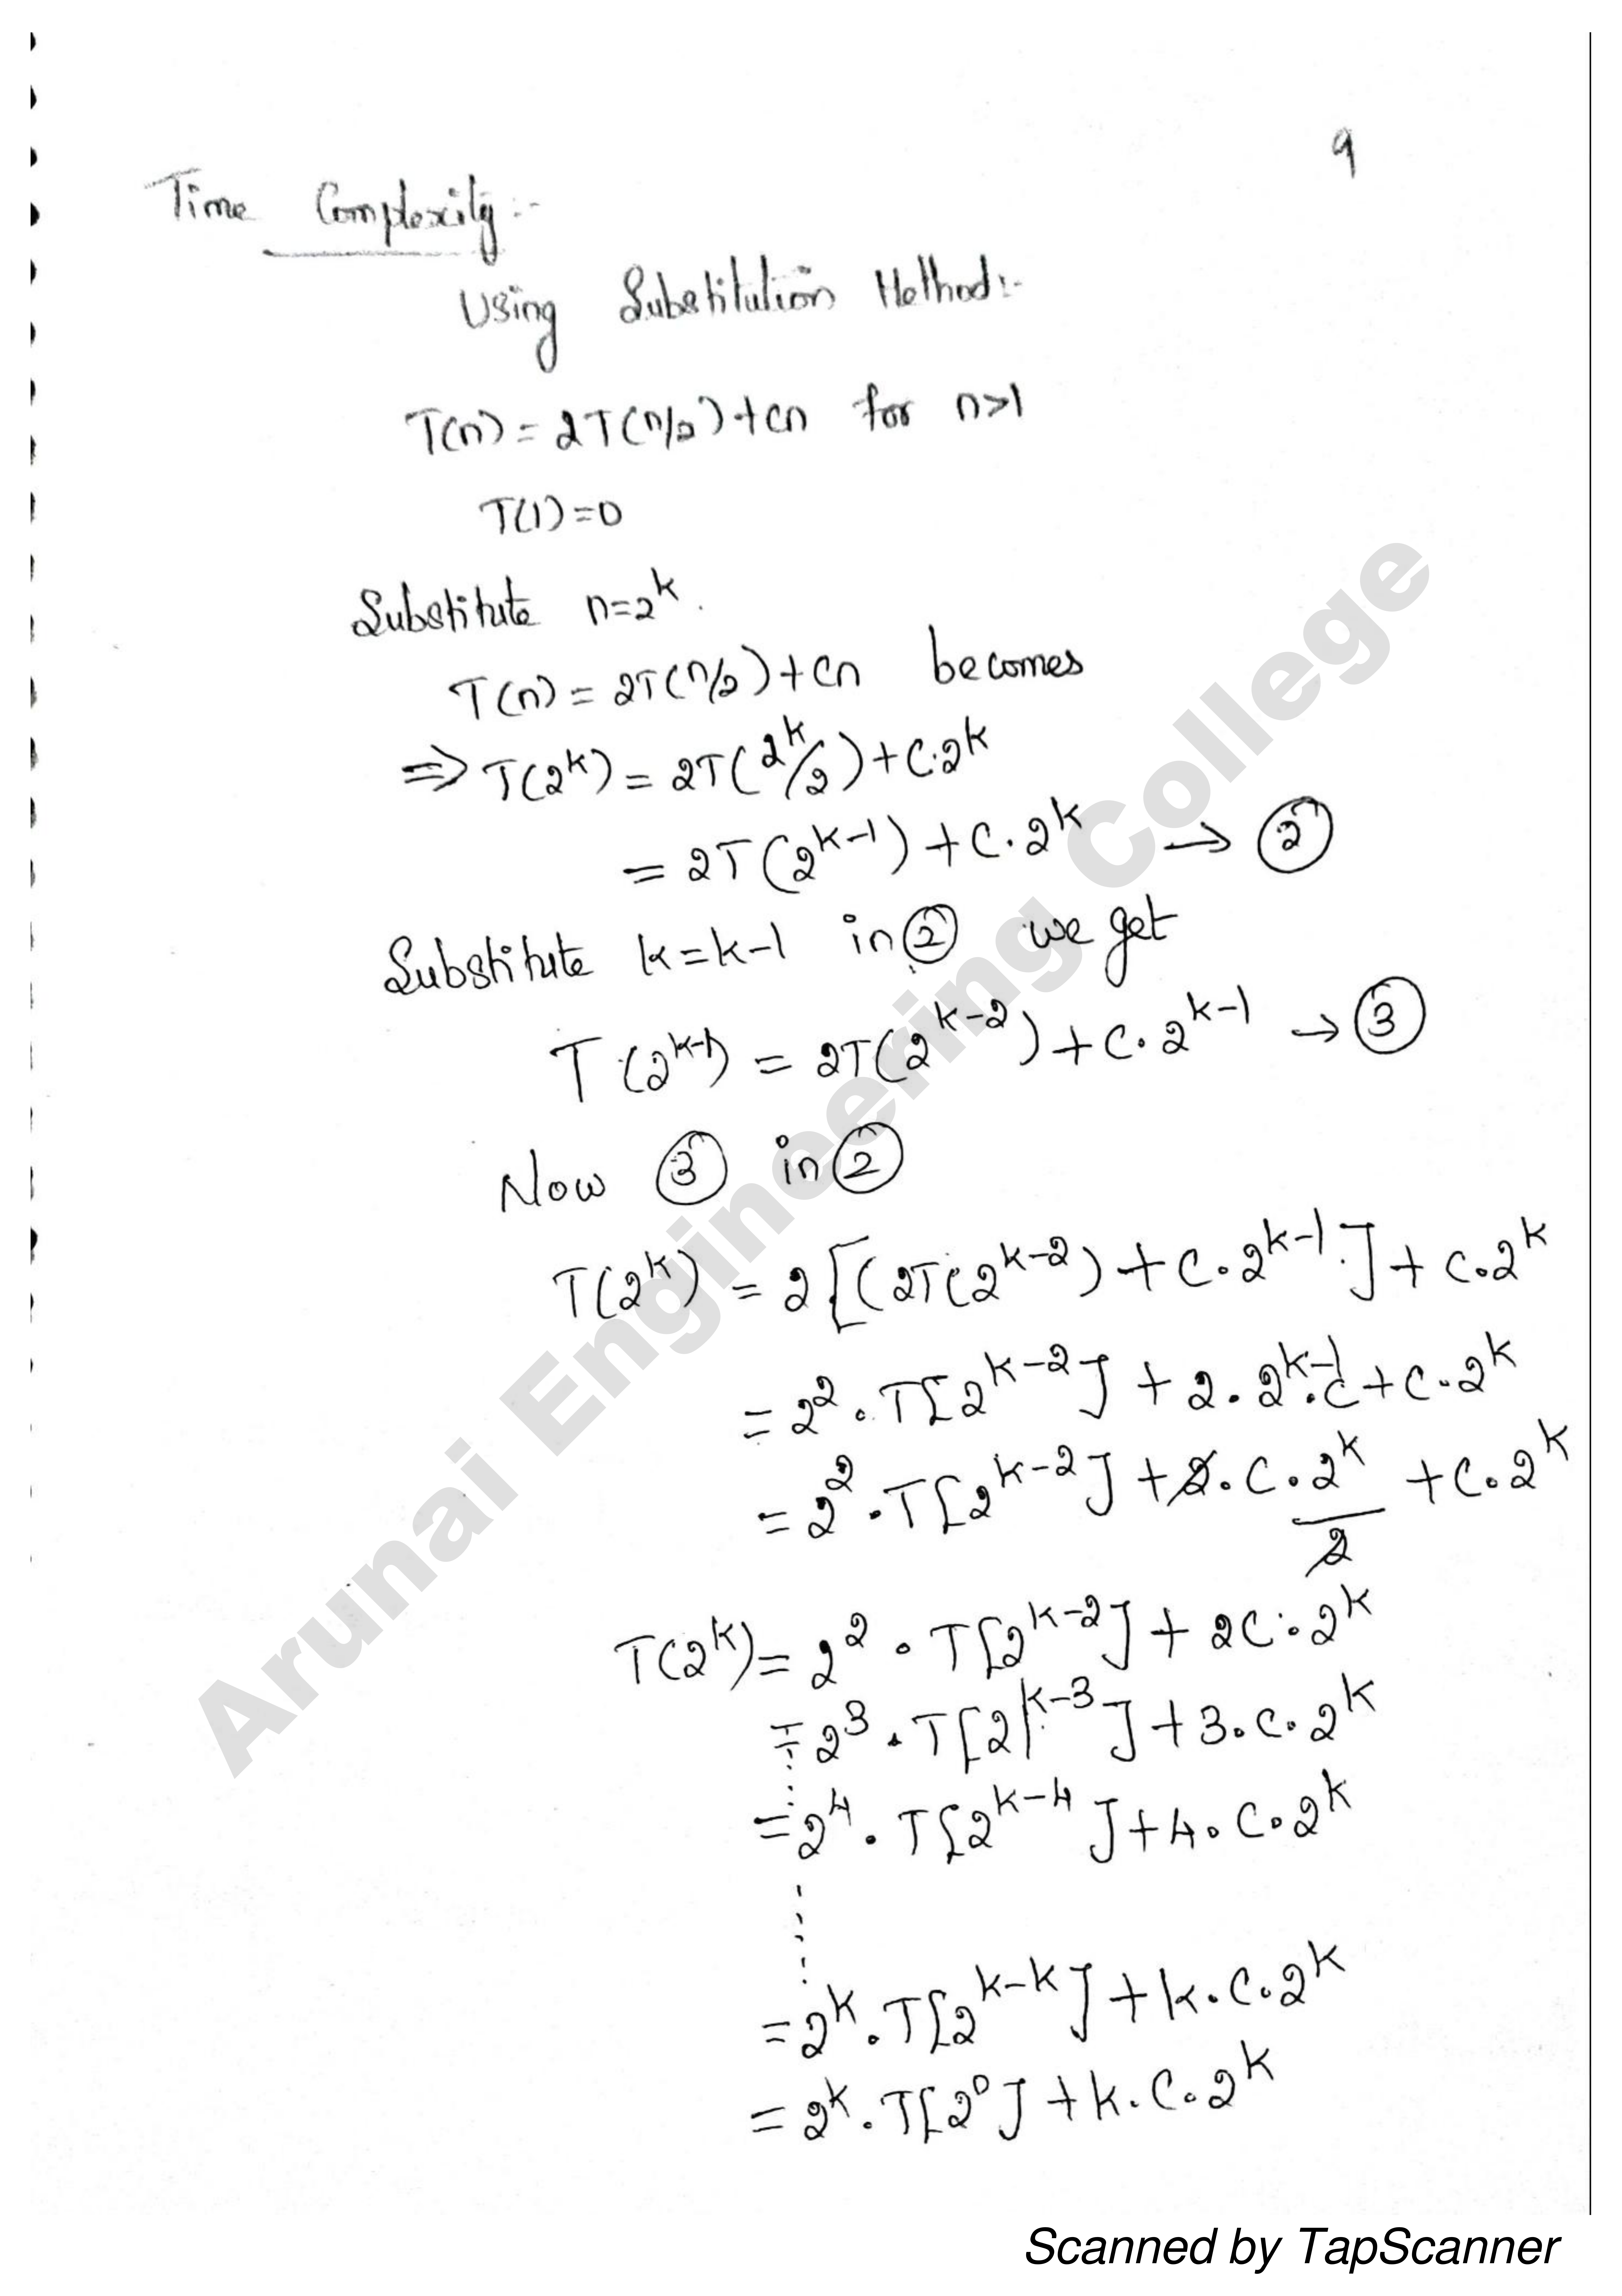 9
Time Complexity:-
Using Substitution Method:-
T(n) = 2T(n/2) + cn for n>1
T(1) = 0
Substitute n=2^k.
T(n) = 2T(n/2) + cn becomes
⇒ T(2^k) = 2T(2^k/2) + C.2^k
= 2T(2^{k-1}) + C.2^k → ②
Substitute k=k-1 in ② we get
T(2^{k-1}) = 2T(2^{k-2}) + C.2^{k-1} → ③
Now ③ in ②
T(2^k) = 2[(2T(2^{k-2}) + C.2^{k-1}] + C.2^k
= 2^2.T[2^{k-2}] + 2.2^{k-1}.C + C.2^k
= 2^2.T[2^{k-2}] + 2.C.2^k/2 + C.2^k
T(2^k) = 2^2.T[2^{k-2}] + 2C.2^k
= 2^3.T[2^{k-3}] + 3.C.2^k
= 2^4.T[2^{k-4}] + 4.C.2^k
= 2^k.T[2^{k-k}] + k.C.2^k
= 2^k.T[2^0] + k.C.2^k
Arunai Engineering College
Scanned by TapScanner